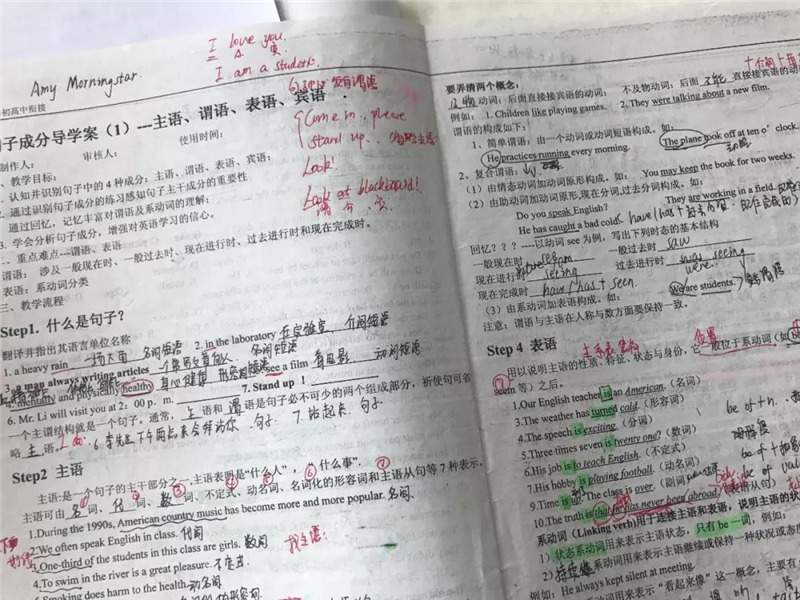 Amy Morningstar.
I love you.
I am a student.
初高中衔接
句子成分导学案（1）---主语、谓语、表语、宾语
Come in, please
stand up.
Look!
Look at blackboard!
制作人： 审核人： 使用时间：
、教学目标：
、认知并识别句子中的4种成分：主语、谓语、表语、宾语；
2. 通过识别句子成分的练习感知句子主干成分的重要性
通过回忆，记忆丰富对谓语及系动词的理解；
3. 学会分析句子成分，增强对英语学习的信心。
二、重点难点---谓语、表语
谓语： 涉及一般现在时、一般过去时、现在进行时、过去进行时和现在完成时。
表语：系动词分类
三、教学流程
Step1. 什么是句子？
翻译并指出其语言单位名称
1. a heavy rain 一场大雨 名词短语 2. in the laboratory 在实验室 介词短语
3. a man always writing articles 名词短语
4. mentally and physically healthy 身心健康 形容词短语 see a film 看电影 动词短语
6. Mr. Li will visit you at 2：00 p. m. 7. Stand up ！
一个主谓结构就是一个句子。通常，主语和谓语是句子必不可少的两个组成部分，祈使句可省
略主语。 6.李先生下午两点来会拜访你.句子. 7.站起来.句子
Step2 主语
主语:是一个句子的主干部分之一.主语表明是“什么人”，“什么事”.
主语可由名词、代词、数词、不定式、动名词、名词化的形容词和主语从句等7种表示。
1.During the 1990s, American country music has become more and more popular. 名词.
2.We often speak English in class. 代词
3.One-third of the students in this class are girls. 数词 找主语:
4.To swim in the river is a great pleasure. 不定式.
5.Smoking does harm to the health. 动名词
要弄清两个概念：
及物动词：后面直接接宾语的动词； 不及物动词：后面不能直接接宾语的动词
例如： 1. Children like playing games. 2. They were talking about a new film.
谓语的构成如下：
1. 简单谓语：由一个动词或动词短语构成。如：
He practices running every morning. The plane took off at ten o’clock.
2. 复合谓语：
（1）由情态动词加动词原形构成。如： You may keep the book for two weeks.
（2）由助动词加动词原形,现在分词,过去分词构成。如：
Do you speak English? They are working in a field.
He has caught a bad cold.
回忆？？？----以动词 see 为例，写出下列时态的基本结构
一般现在时 一般过去时 saw
现在进行时 seeing 过去进行时 was seeing
were.
现在完成时 have/has + seen. We are students.
（3）由系动词加表语构成。如:
注意：谓语与主语在人称与数方面要保持一致。
Step 4 表语
用以说明主语的性质、特征、状态与身份，它一般位于系动词（如 be
seem 等）之后。
1.Our English teacher is an American.（名词）
2.The weather has turned cold.（形容词）
4.The speech is exciting.（分词）
5.Three times seven is twenty one?（数词）
6.His job is to teach English.（不定式）
7.His hobby is playing football.（动名词）
9.Time is up. The class is over.（副词）
10.The truth is that he has never been abroad.（表语从句）
系动词（Linking verb)用于连接主语和表语，说明主语的状
1）状态系动词用来表示主语状态，只有 be 一词，例如：
2）持续系动词用来表示主语继续或保持一种状况或态
例如: He always kept silent at meeting.
动词用来表示“看起来像”这一概念，主要有